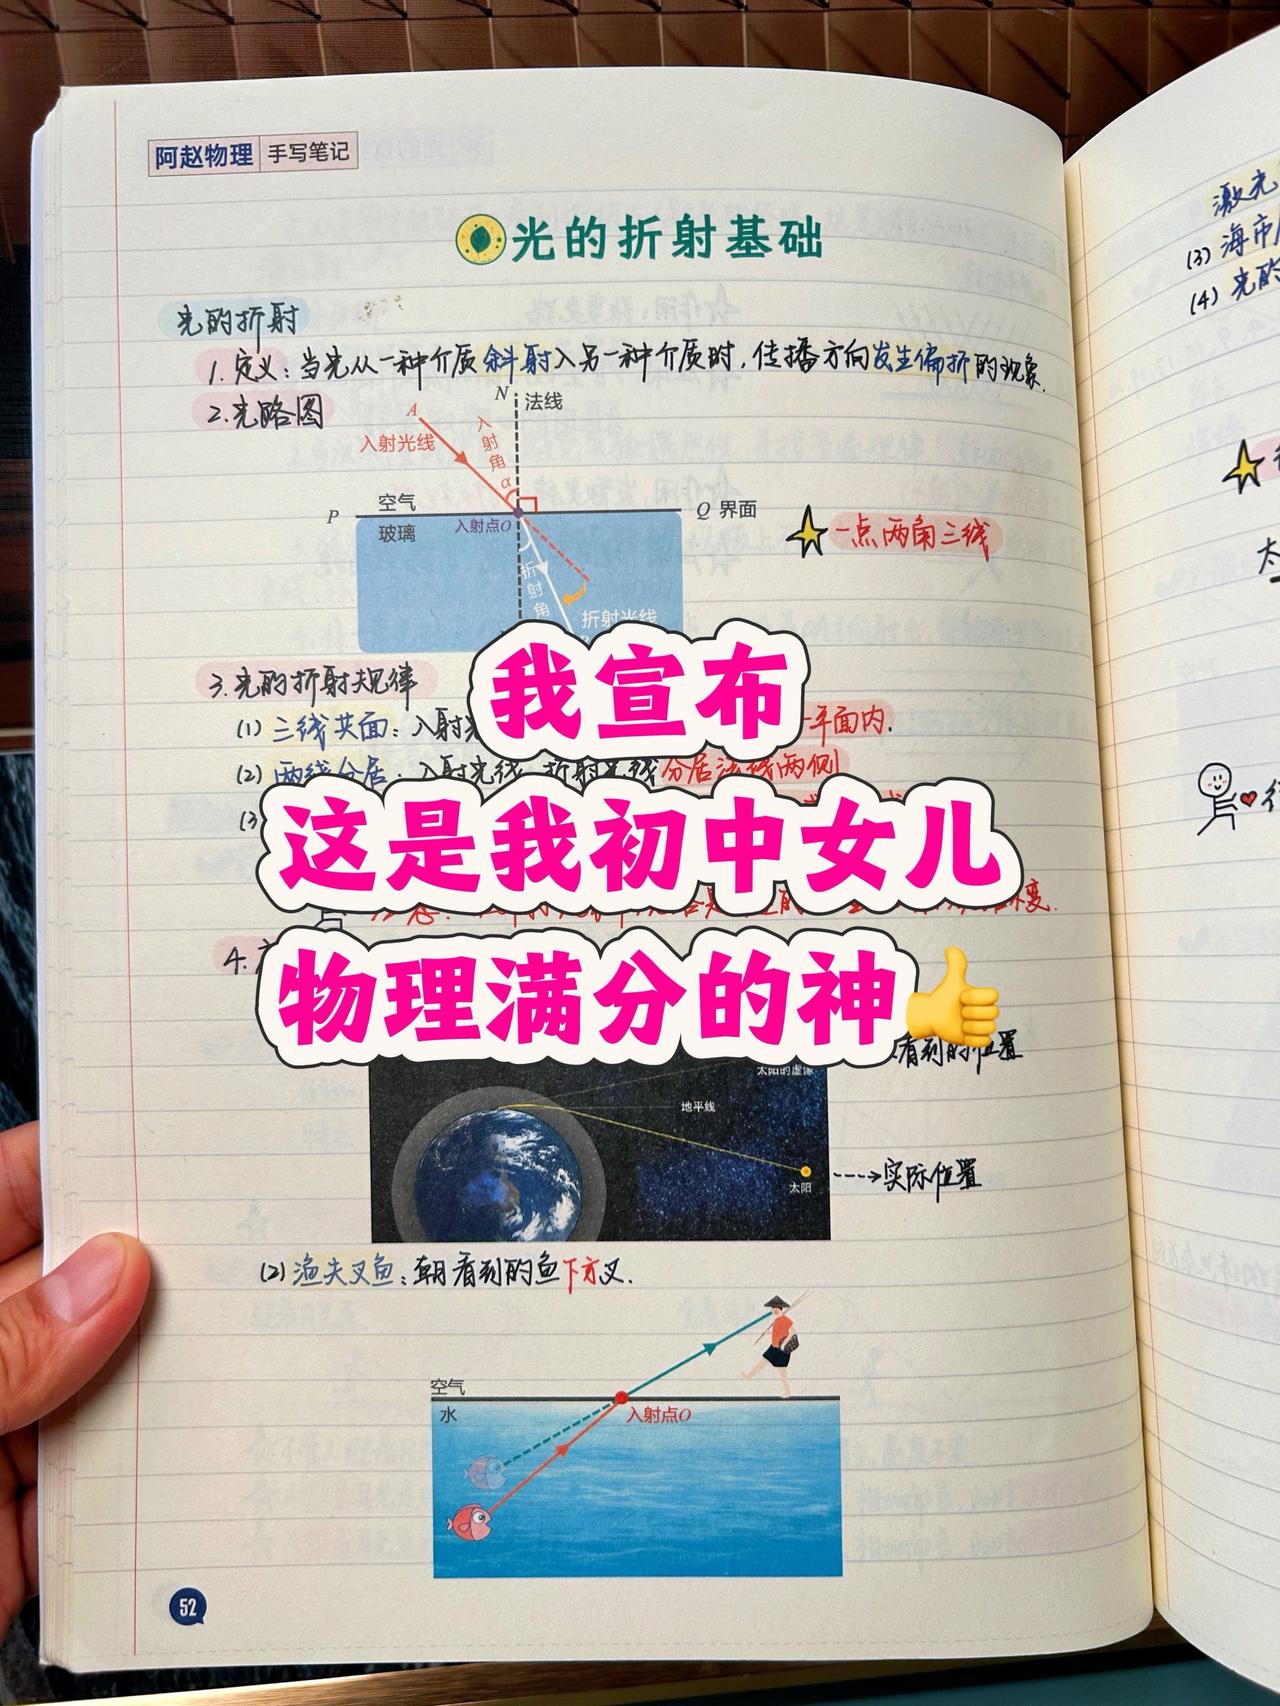 阿赵物理 手写笔记
光的折射基础
光的折射
1. 定义：当光从一种介质斜射入另一种介质时，传播方向发生偏折的现象.
2. 光路图
N 法线
A
入射光线
入射角
α
空气
P
Q 界面
玻璃
入射点O
一点两角三线
折射角
折射光线
3. 光的折射规律
(1) 三线共面：入射光
平面内.
(2) 两线分居：入射光线 折射光线分居法线两侧
(3
变.
4.
我宣布
这是我初中女儿
物理满分的神👍
看到的位置
太阳的虚像
地平线
太阳
实际位置
(2) 渔夫叉鱼：朝看到的鱼下方叉.
空气
水
入射点O
52
激光
(3) 海市
(4) 光的
太